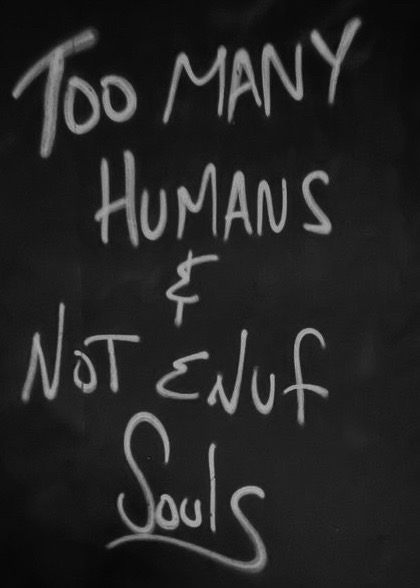 Too MANY
HUMANS
&
NoT ENuf
Souls